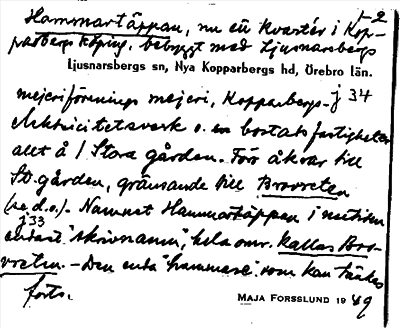 Hammartäppan, nu ett kvarter i Kop-
parbergs köping, bebyggt med Ljusnarsbergs
Ljusnarsbergs sn, Nya Kopparbergs hd, Örebro län.
mejeriförenings mejeri, Kopparbergs
elektricitetsverk o. en bostadsfastigheter
allt å / Stora gården. Förr åkrar till
St. gården, gränsande till Brovreten
(se d.o.). Namnet Hammartäppan i mitten
endast "skrivnamn", hela omr. kallas Bro-
vreten. – Den enda "hammare" som kan tänkas
forts.
MAJA FORSSLUND 1949